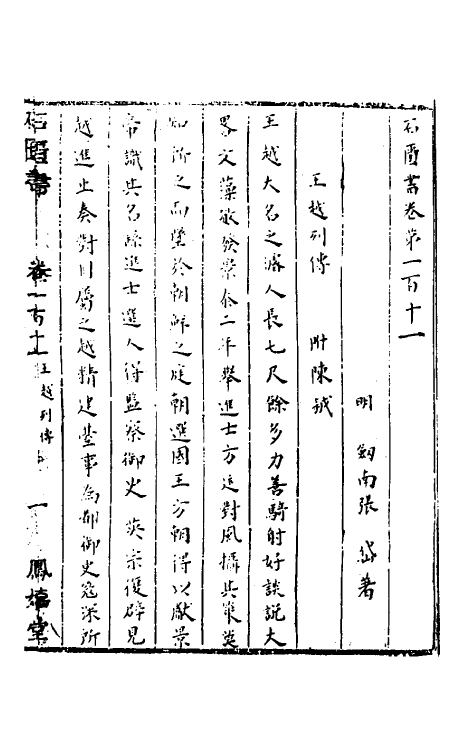 石匱書卷第一百十一
明 劒南張 岱著
王越列傳 附陳鉞
王越大名之濬人長七尺餘多力善騎射好談說大
畧文藻敏發景泰二年舉進士方廷對風攝其策莫
知所之而墜於朝鮮之庭朝選國王方朝得以獻景
帝識其名踰進士選人得監察御史 英宗復辟見
越進止奏對目屬之越精建臺事為都御史寇深所
石匱書 卷一百十一 王越列傳 一 鳳嬉堂